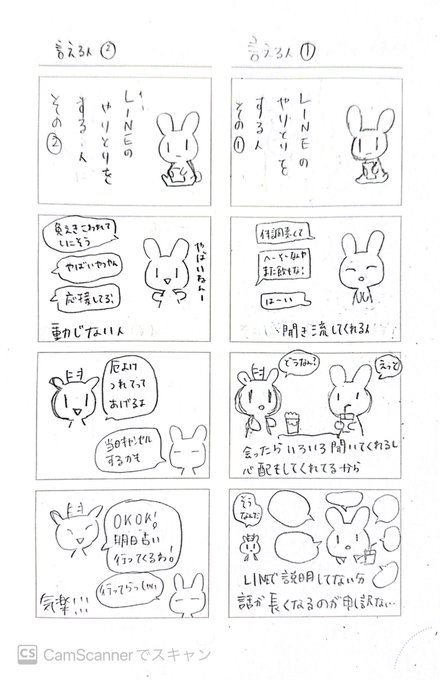 言える人①
LINEの
やりとりを
する人
その①
体調悪くて
へーそーなんや
また飲もな!
はーい
聞き流してくれる人
どうなん?
えっと
会ったらいろいろ聞いてくれるし
心配もしてくれてるから
そう
なんだ
LINEで説明してない分
話が長くなるのが申し訳ない
言える人②
LINEの
やりとりを
する人
その②
やっばいねんー
しにそう
やばいやんやん
応援してる!
動じない人
厄よけ
つれてって
あげるよ
当日キャンセル
するかも
OKOK!
明日占い
行ってくるわ!
行ってらっしゃい
気楽!!!
CS CamScannerでスキャン